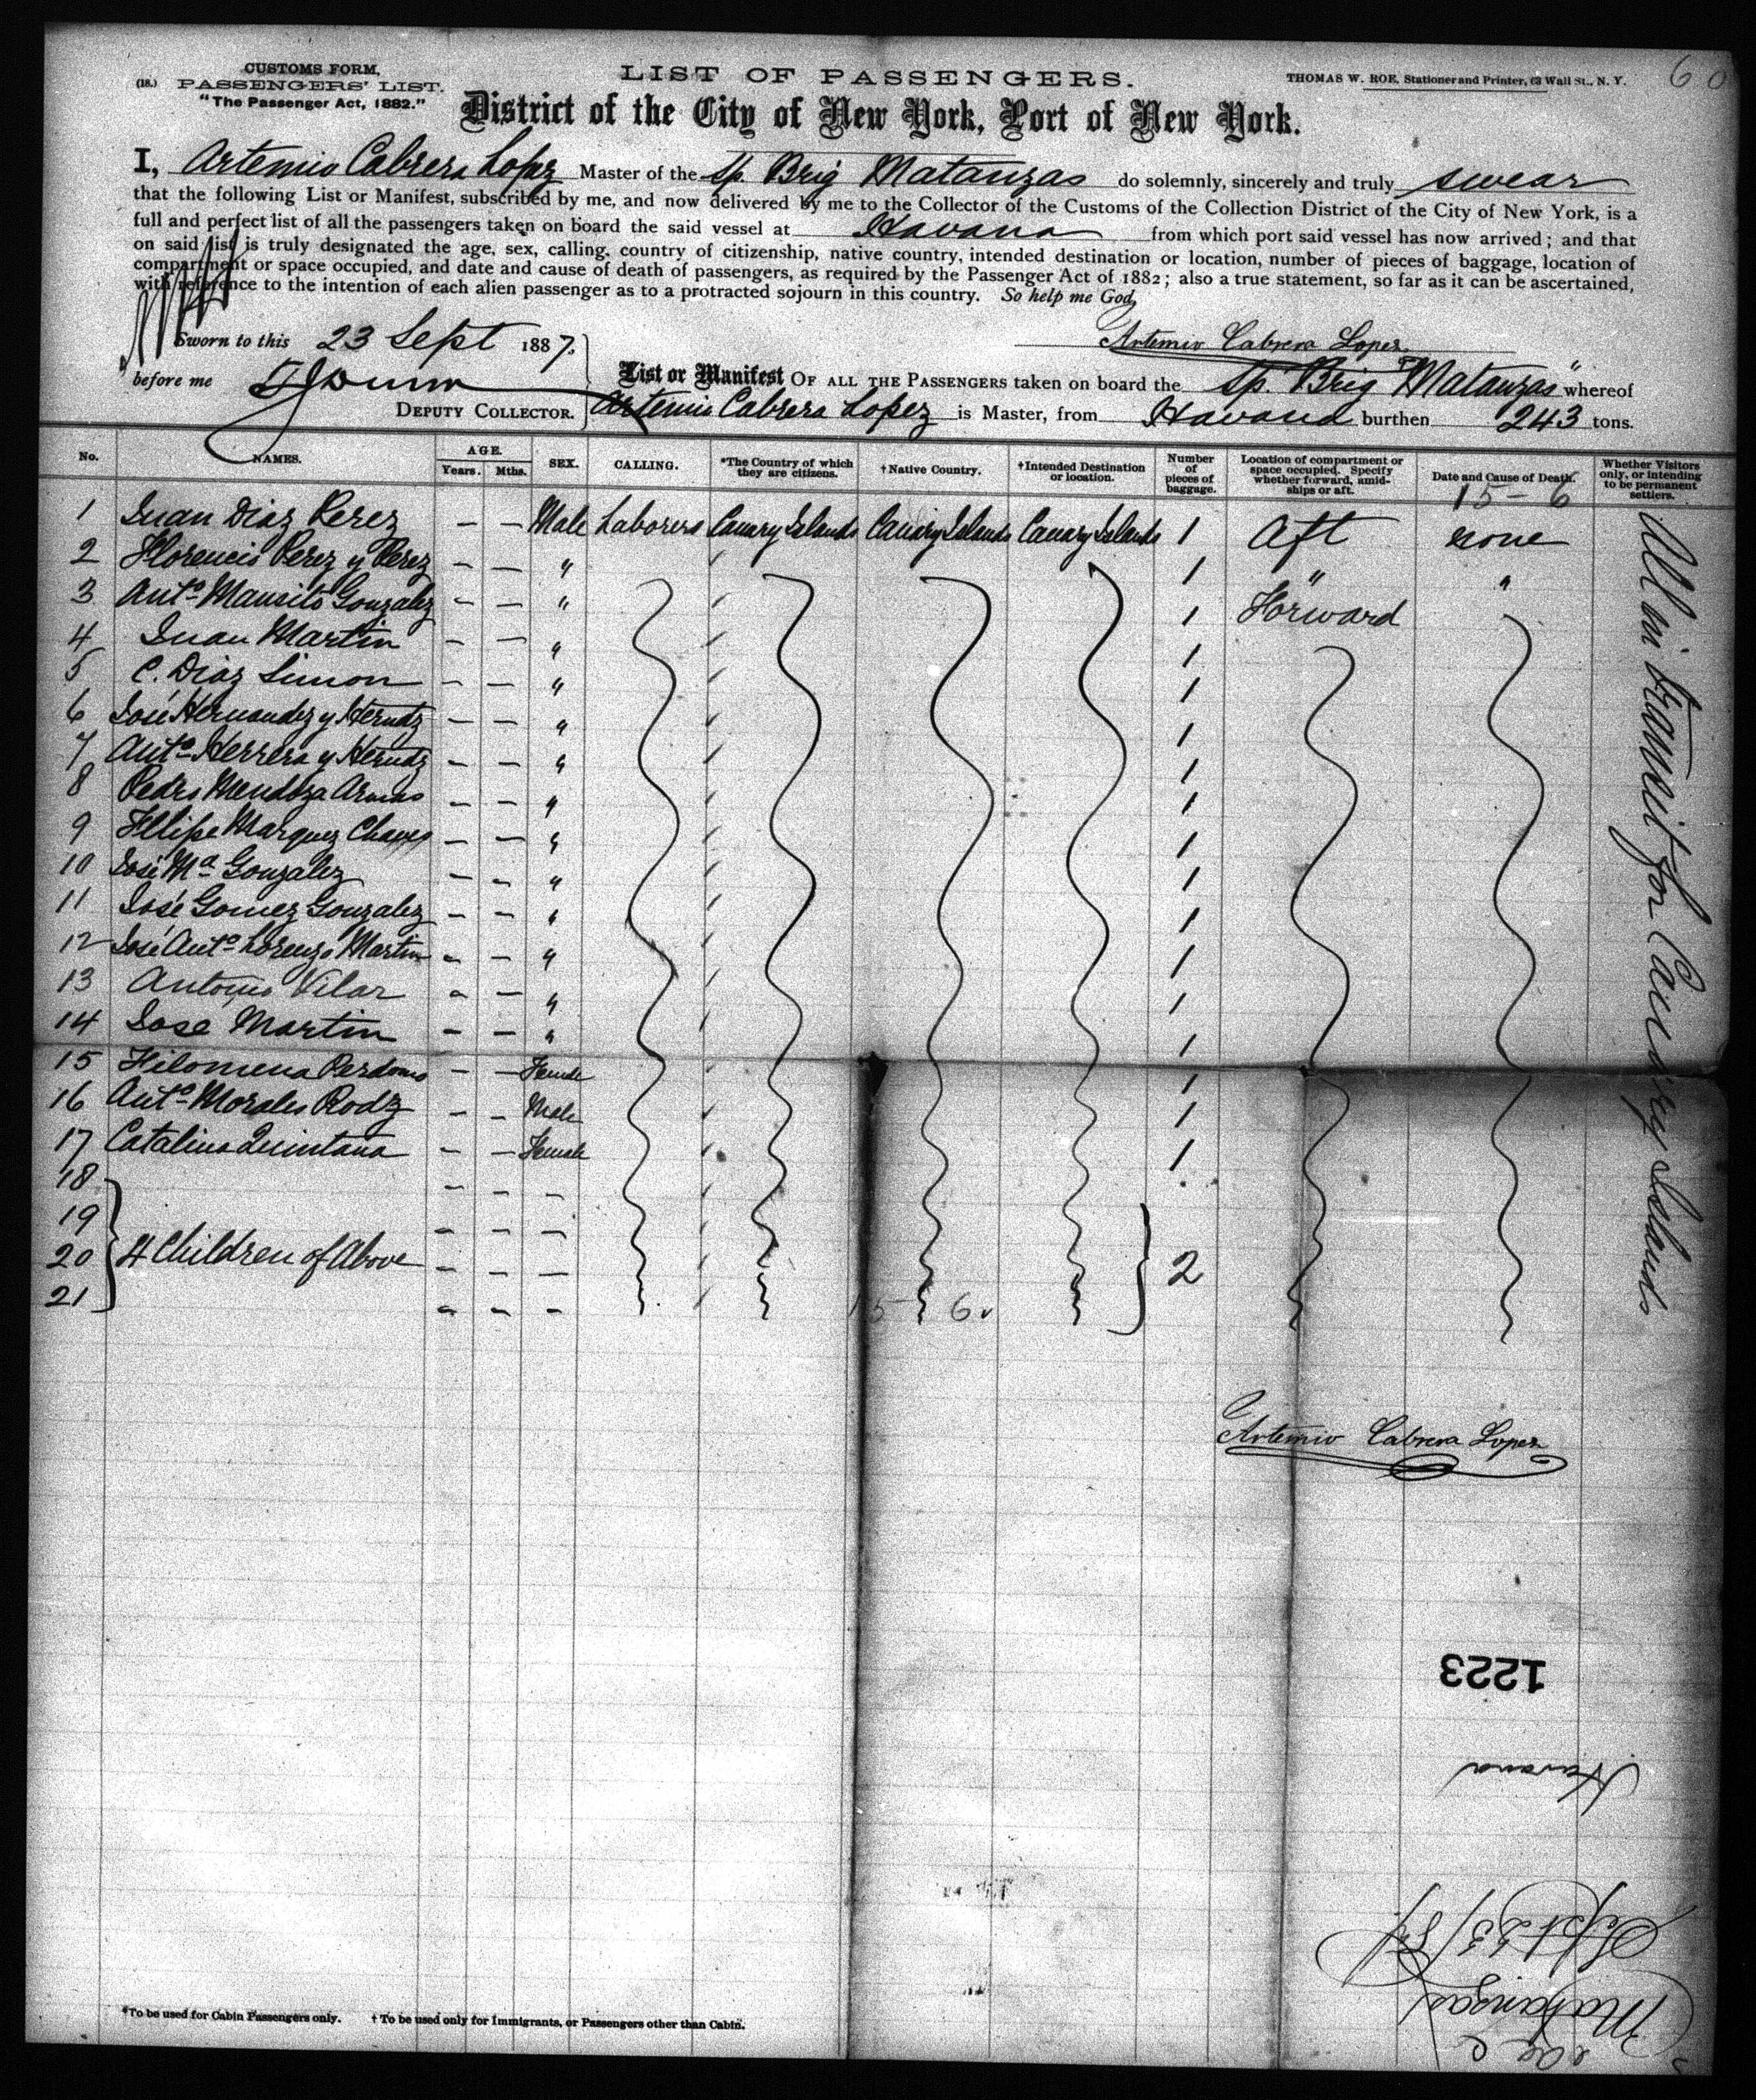 60
CUSTOMS FORM,
(18.) PASSENGERS' LIST.
"The Passenger Act, 1882."
LIST OF PASSENGERS.
THOMAS W. ROE, Stationer and Printer, 63 Wall St., N. Y.
District of the City of New York, Port of New York.
I, Artemio Cabrera Lopez Master of the Sp. Brig Matanzas do solemnly, sincerely and truly swear
that the following List or Manifest, subscribed by me, and now delivered by me to the Collector of the Customs of the Collection District of the City of New York, is a
full and perfect list of all the passengers taken on board the said vessel at Havana from which port said vessel has now arrived; and that
on said list is truly designated the age, sex, calling, country of citizenship, native country, intended destination or location, number of pieces of baggage, location of
compartment or space occupied, and date and cause of death of passengers, as required by the Passenger Act of 1882; also a true statement, so far as it can be ascertained,
with reference to the intention of each alien passenger as to a protracted sojourn in this country. So help me God,
Sworn to this 23 Sept 1887,
Artemio Cabrera Lopez
before me
DEPUTY COLLECTOR.
List or Manifest OF ALL THE PASSENGERS taken on board the Sp. Brig "Matanzas" whereof
Artemio Cabrera Lopez is Master, from Havana burthen 243 tons.
No. NAMES. AGE. Years. Mths. SEX. CALLING. *The Country of which they are citizens. †Native Country. †Intended Destination or location. Number of pieces of baggage. Location of compartment or space occupied. Specify whether forward, amidships or aft. Date and Cause of Death. Whether Visitors only, or intending to be permanent settlers.
15 - 6
1 Juan Diaz Perez — — Male Laborers Canary Islands Canary Islands Canary Islands 1 Aft none
2 Florencio Perez y Perez — — " 1 " "
3 Antº Mansito Gonzalez — — " 1 Forward
4 Juan Martin — — " 1
5 C. Diaz Simon — — " 1
6 José Hernandez y Herndz — — " 1
7 Antº Herrera y Herndz — — " 1
8 Pedro Mendoza Armas — — " 1
9 Fllipe Marquez Chaves — — " 1
10 José Mª Gonzalez — — " 1
11 José Gomez Gonzalez — — " 1
12 José Antº Lorenzo Martin — — " 1
13 Antonio Vilar — — " 1
14 Jose Martin — — " 1
15 Filomena Perdomo — — Female 1
16 Antº Morales Rodz — — Male 1
17 Catalina Quintana — — Female 1
18 — — —
19 — — —
20 4 Children of Above — — — 2
21 — — —
15 6
All in transit for Canary Islands
Artemio Cabrera Lopez
1223
Havana
Sept 23/87
Matanzas
*To be used for Cabin Passengers only. † To be used only for Immigrants, or Passengers other than Cabin.